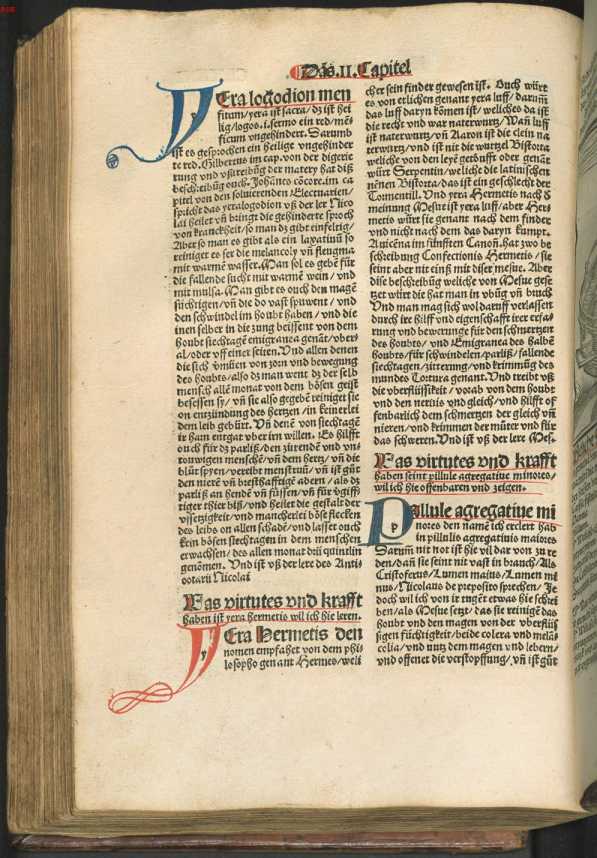 Das .II. Capitel
YEra logodion men
fitum/yera ist sacra/dz ist hei
lig/logos.i.sermo ein red/mēs
ficum vngehindert. Darumb
ist es gesprochen ein heilige vngehinder
te red. Gilbertus im cap. von der digerie
rung vnd vsstreibūg der matery hat diß
beschreibūg ouch. Johānes cōcore.im ca
pitel von den soluierenden Electuarien/
spricht das yeralogodion vß der ler Nico
lai heilet vñ bringt die gehinderte sproch
von kranckheit/so man dz gibt einfeltig/
Aber so man es gibt als ein laxatiuū so
reiniget es ser die melancoly vñ fleugma
mit warmē wasser. Man sol es gebē für
die fallende sucht mit warmē wein/vnd
mit mulsa. Man gibt es ouch den magē
süchtigen/vñ die do vast spuwent/vnd
den schwindel im houbt haben/vnd die
inen selber in die zung beissent von dem
houbt siechtagē emigranea genāt/vber
al/oder vff einer seiten. Vnd allen denen
die sich vnmüen von zorn vnd bewegung
des houbts/also dz man went dz der selb
mensch alle monat von dem bösen geist
besessen sy/vñ sie also gegebē reiniget sie
on entzündung des hertzen/in keinerlei
dem leib gebürt. Vñ denē von siechtagē
ir harn entgat vber irn willen. Es hilfft
ouch für dz parliß/den zitrendē vnd vn
rouwigen menschē/vñ dem hertz/vñ die
blůt spyen/vertreibt menstruū/vñ ist gůt
den nierē vñ bresthafftigē adern/als dz
parliß an hendē vñ füssen/vñ für vgiff
riger thier biß/vnd heilet die gestalt der
vssetzigkeit/vnd mancherlei böse flecken
des leibs on allen schadē/vnd lasset ouch
kein bösen siechtagen in dem menschen
erwachsen/des allen monat drü quintlin
genōmen. Vnd ist vß der ler des Anti
dotarij Nicolai
Was virtutes vnd krafft
haben ist yera hermetis wil ich hie leren.
YEra Hermetis den
nomen empfahet von dem phi
losopho genant Hermes/weli
cher sein finder gewesen ist. Ouch würt
es von etlichen genant yera luff/darum̄
das luff daryn kōmen ist/weliches da ist
die recht vnd war naterwurtz/Wañ luff
ist naterwurtz/vñ Aaron ist die clein na
terwurtz/vnd ist nit die wurtzel Bistorta
weliche von den leyē gebrufft oder genāt
würt Serpentin/weliche die latinischen
nēnen Bistorta/das ist ein geschlecht der
Tormentill. Vnd yera Hermetis nach d
meinung Mesue ist yera luff/aber Her
metis würt sie genant nach dem finder
vnd nicht nach dem das daryn kumpt.
Auicēna im fünfften Canoñ. hat zwo be
schreibung Confectionis Hermetis/sie
seint aber nit einß mit diser mesue. Aber
dise beschreibūg weliche von Mesue gese
tzet würt die hat man in vbūg vñ bruch
Vnd man mag sich wol daruff verlassen
durch ire hilff vnd eigenschafft irer erfa
rung vnd bewerunge für den schmertzen
des houbts/vnd Emigranea des halbē
houbts/für schwindelen/parliß/fallende
siechtagen/zitterung/vnd krimmūg des
mundes Tortura genant. Vnd treibt vß
die vberflüssikeit/vorab von dem houbt
vnd den neruis vnd gleich/vnd hilfft of
fenbarlich dem schmertzen der gleich vñ
nieren/vnd krimmen der můter vnd für
das schweren. Vnd ist vß der lere Mes.
Was virtutes vnd krafft
haben seint pillule agregatiue minores/
wil ich hie offenbaren vnd zeigen.
Pillule agregatiue mi
nores den namē ich erclert hab
in pillulis agregatiuis maiores
Darum̄ nit not ist hie vil dar von zu re
den/dañ sie seint nit vast in brauch/Als
Cristoferus/Lumen maius/Lumen mi
nus/Nicolaus de preposito sprechen/Je
doch wil ich von ir tugēt etwas hie schrei
ben/als Mesue setz/das sie reinigē das
houbt vnd den magen von der vberflüs
sigen füchtigkeit/beide colera vnd melā
colia/vnd nutz dem magen vnd lebern/
vnd offenet die verstopffung/vñ ist gůt